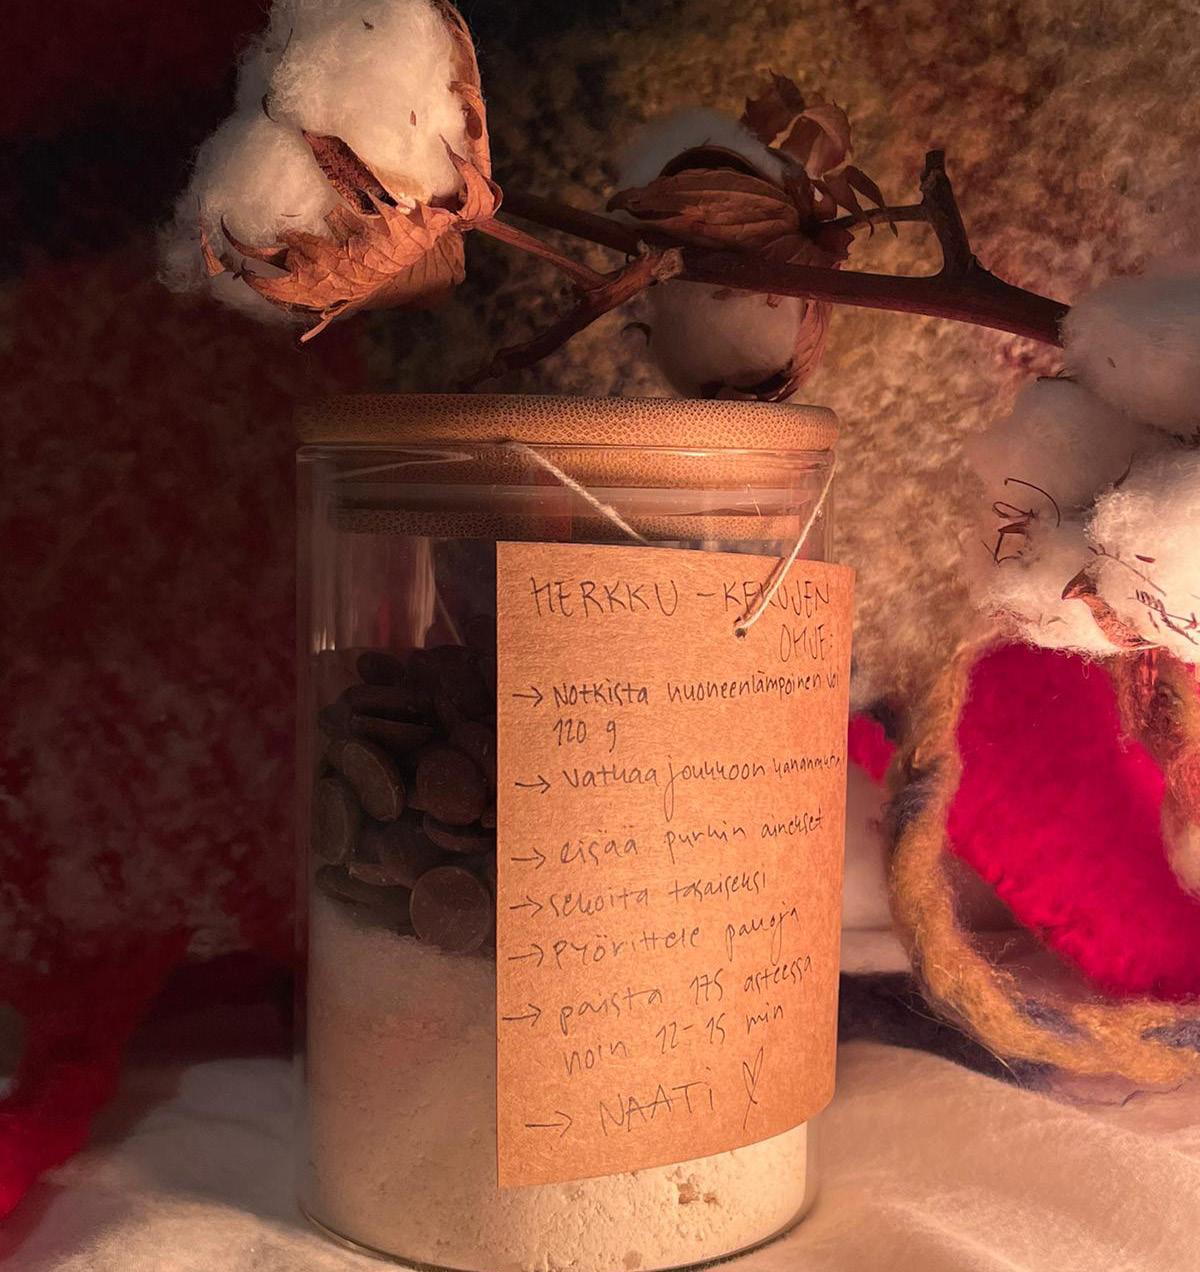 HERKKU - KEKSIJEN
OHJE:
→ Notkista huoneenlämpöinen voi
120 g
→ vatkaa joukkoon kananmuna
→ lisää purkin ainekset
→ sekoita tasaiseksi
→ pyörittele palloja
→ paista 175 asteessa
noin 12-15 min
→ NAATi ♡